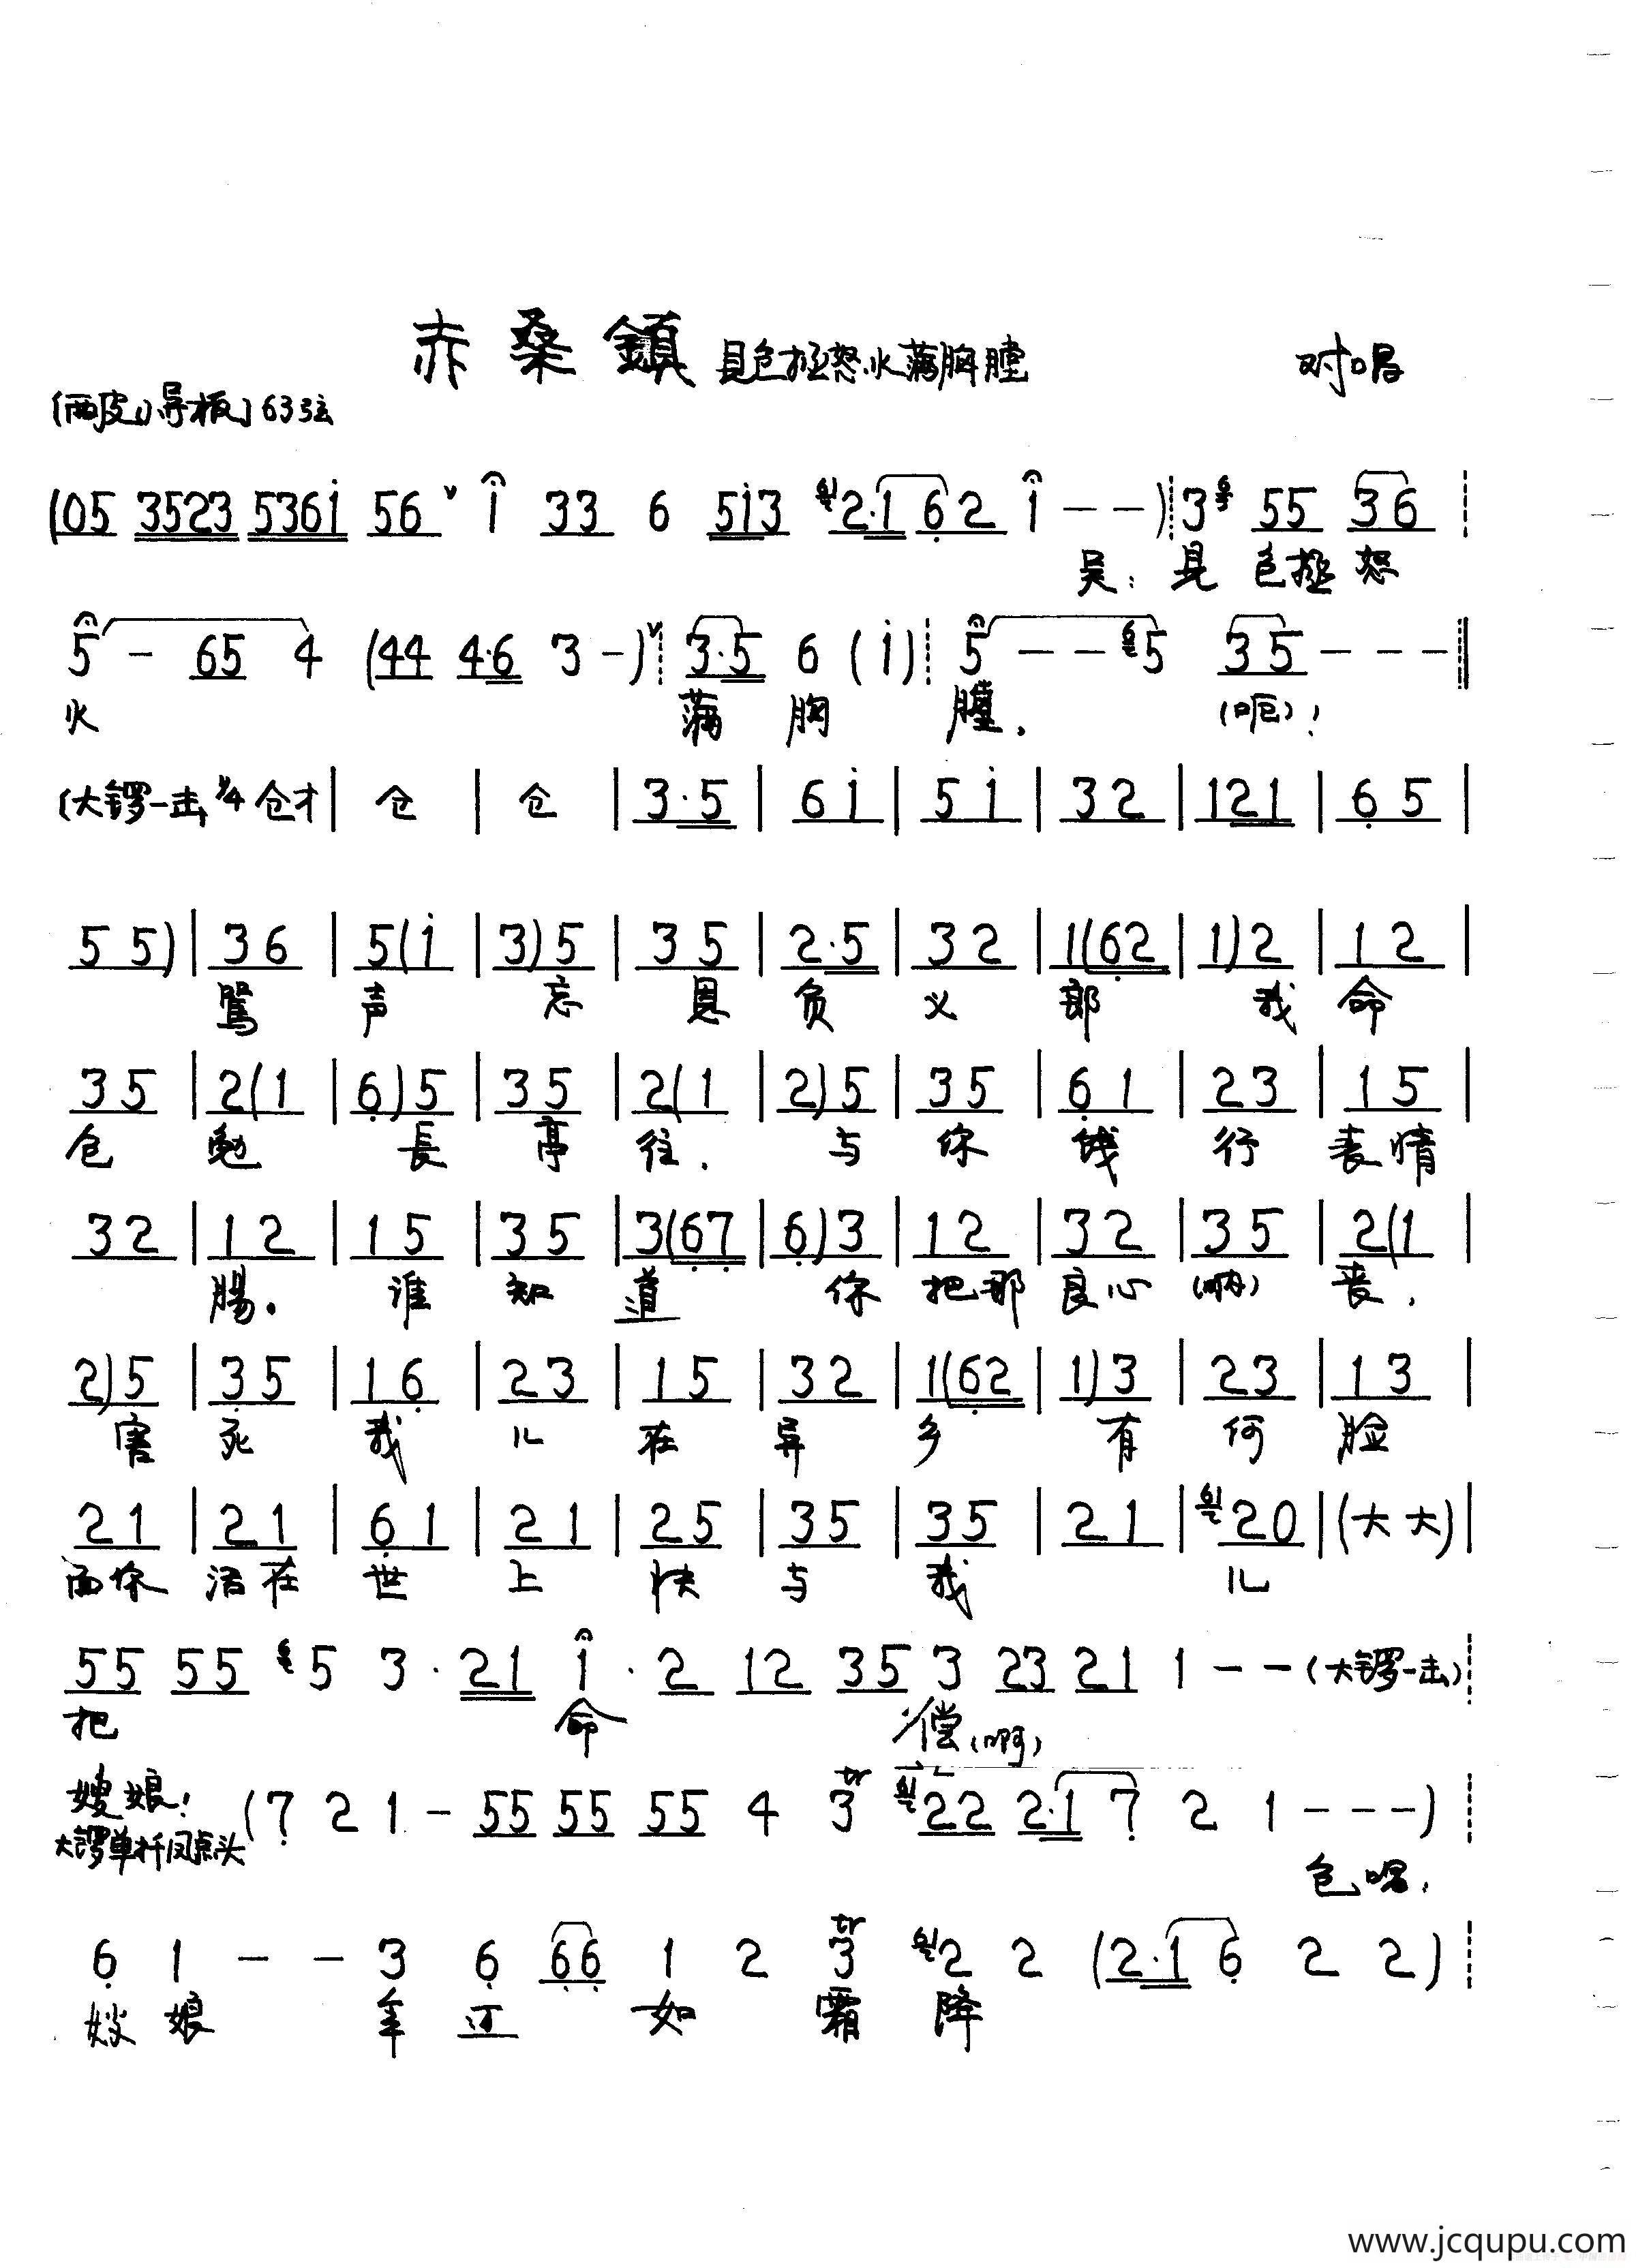 赤桑鎮 見包拯怒火滿胸膛 对唱
(西皮小导板) 63弦
(05 3523 536i 56 ᵛ i 33 6 5i3 2·1 62 i - - ) 3 55 36
吴: 見包拯怒
5 - 65 4 (44 4·6 3 -)ᵛ 3·5 6 (i) 5 - - 5 35 - - -
火 滿胸膛. (呃)!
(大锣一击 1/4 仓才 | 仓 | 仓 | 3·5 | 6i | 5i | 32 | 121 | 65 |
55) | 36 | 5(i | 3)5 | 35 | 2·5 | 32 | 1(62 | 1)2 | 12 |
罵声忘恩负义郎 我命
35 | 2(1 | 6)5 | 35 | 2(1 | 2)5 | 35 | 61 | 23 | 15 |
包勉長亭往. 与你饯行表情
32 | 12 | 15 | 35 | 3(67 | 6)3 | 12 | 32 | 35 | 2(1 |
腸。谁知道你把那良心(呐)丧,
2)5 | 35 | 16 | 23 | 15 | 32 | 1(62 | 1)3 | 23 | 13 |
害死我儿在异乡 有何脸
21 | 21 | 61 | 21 | 25 | 35 | 35 | 21 | 20 | (大大) |
面你活在世上快与我儿
55 55 5 3 · 21 i · 2 12 35 3 23 21 1 - - (大锣一击)
把命偿(啊)
嫂娘! (7 2 1 - 55 55 55 4 3 22 2·1 7 2 1 - - -)
大锣单扦凤点头
包唱,
6 1 - - 3 6 66 1 2 3 2 2 (2·1 6 2 2)
嫂娘年迈如霜降
www.jcqupu.com